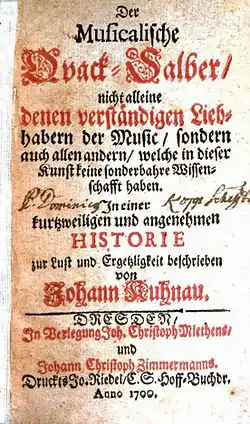 Der
Musicalische
Qvack-Salber/
nicht alleine
denen verständigen Lieb-
habern der Music/ sondern
auch allen andern/ welche in dieser
Kunst keine sonderbahre Wissen-
schafft haben.
P. Dominicus
In einer
kurtzweiligen und angenehmen
HISTORIE
zur Lust und Ergetzligkeit beschrieben
von
Johann Kuhnau.
DRESDEN/
In Verlegung Joh. Christoph Miethens/
und
Johann Christoph Zimmermanns.
Druckts Jo. Riedel/ C. S. Hoff-Buchdr.
Anno 1700.